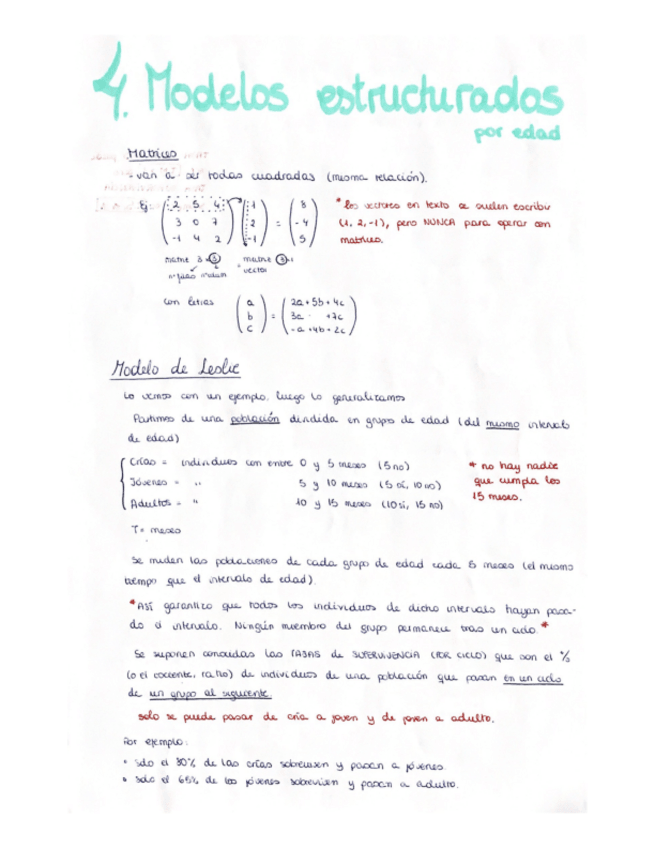 4. Modelos estructurados
por edad
Matrices
- van a ser todas cuadradas (misma relación).
Ej ( 2 5 4 ) ( 1 ) ( 8 )
( 3 0 7 ) ( 2 ) = ( -4 )
( -1 4 2 ) ( -1 ) ( 5 )
* los vectores en texto se suelen escribir
(1, 2, -1), pero NUNCA para operar con
matrices.
matriz 3·3 matriz 3·1
vector
con letras
( a ) ( 2a + 5b + 4c )
( b ) = ( 3a · +7c )
( c ) ( -a +4b + 2c )
Modelo de Leslie
Lo vemos con un ejemplo, luego lo generalizamos
Partimos de una población dividida en grupos de edad (del mismo intervalo
de edad)
Crías = individuos con entre 0 y 5 meses (5 no)
Jóvenes = " 5 y 10 meses (5 sí, 10 no)
Adultos = " 10 y 15 meses (10 sí, 15 no)
* no hay nadie
que cumpla los
15 meses.
T = meses
Se miden las poblaciones de cada grupo de edad cada 5 meses (el mismo
tiempo que el intervalo de edad).
* Así garantizo que todos los individuos de dicho intervalo hayan pasa-
do el intervalo. Ningún miembro del grupo permanece tras un ciclo. *
Se suponen conocidas las TASAS de SUPERVIVENCIA (POR CICLO) que son el %
(o el cociente, ratio) de individuos de una población que pasan en un ciclo
de un grupo al siguiente.
solo se puede pasar de cría a joven y de joven a adulto.
Por ejemplo:
• sólo el 80% de las crías sobreviven y pasan a jóvenes.
• sólo el 65% de los jóvenes sobreviven y pasan a adulto.